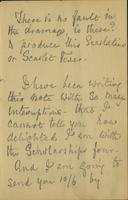 There is no fault in
the drainage, is there?
to produce this Scarlatina
or Scarlet Fever.
I have been writing
this note with so many
interruptions that I
cannot tell you how
delighted I am with
the Scholarships four.
And I am going to
send you 10/6 by